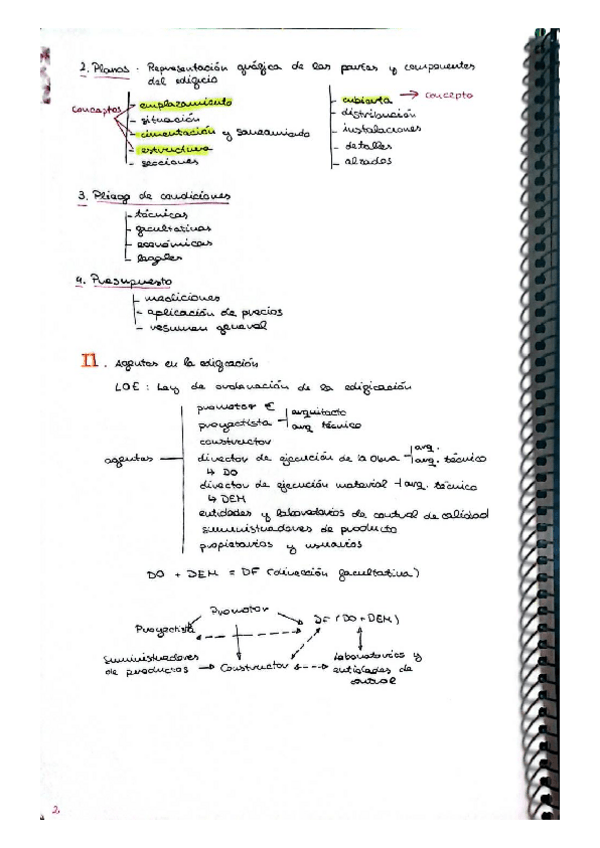 2. Planos. Representación gráfica de las partes y componentes
del edificio
Conceptos
- emplazamiento
- situación
- cimentación y saneamiento
- estructura
- secciones
- cubierta → Concepto
- distribución
- instalaciones
- detalles
- alzados
3. Pliego de condiciones
- técnicas
- facultativas
- económicas
- legales
4. Presupuesto
- mediciones
- aplicación de precios
- resumen general
II. Agentes en la edificación
LOE: Ley de ordenación de la edificación
agentes
promotor €
proyectista - arquitecto
arq técnico
constructor
director de ejecución de la Obra - arq.
arq. técnico
↳ DO
director de ejecución material - arq. técnico
↳ DEM
entidades y laboratorios de control de calidad
suministradores de producto
propietarios y usuarios
DO + DEM = DF (dirección facultativa)
Promotor
Proyectista
DF (DO + DEM)
Suministradores
de productos → Constructor
laboratorios y
entidades de
control
2,